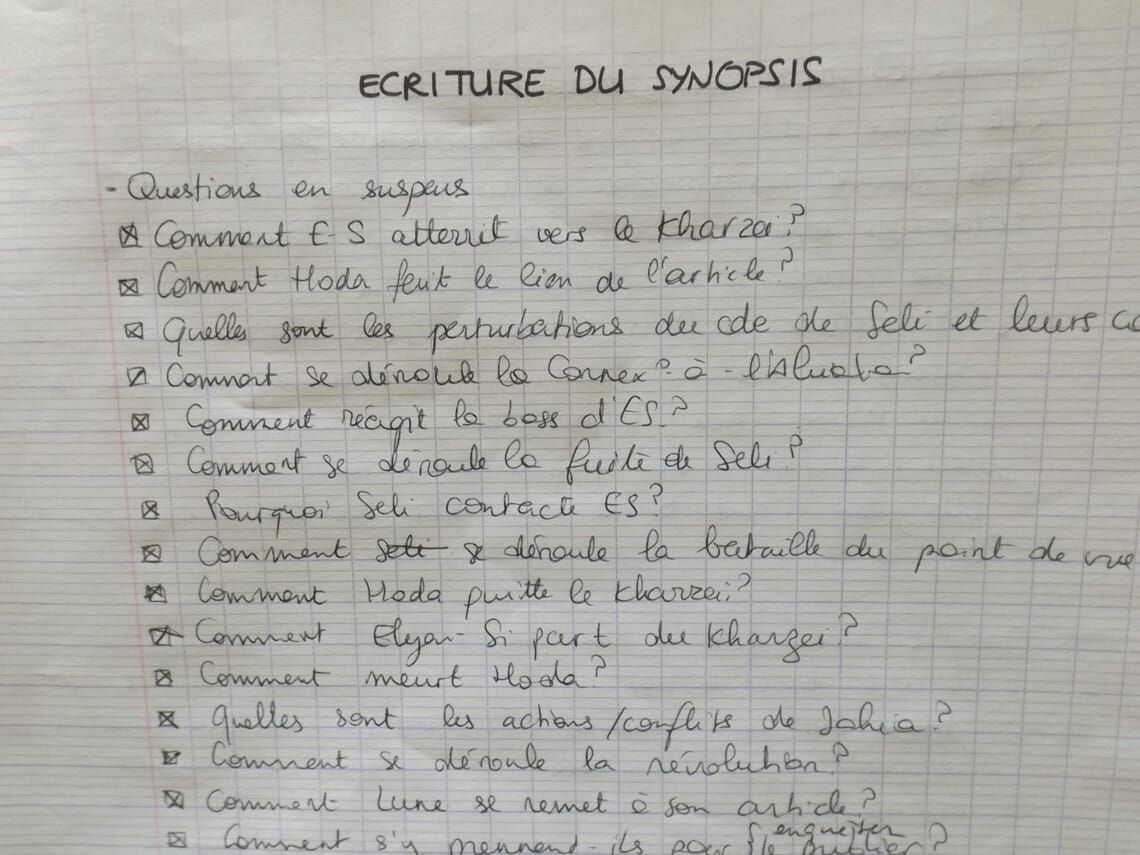 ECRITURE DU SYNOPSIS
- Questions en suspens
Comment E-S atterrit vers le Kharzei?
Comment Hoda fait le lien de l'article?
Quelles sont les perturbations du cde de Seli et leurs
Comment se déroule la Connex° à
Comment réagit le boss d'ES?
Comment se déroule la fuite de Seli?
Pourquoi Seli contacte ES?
Comment Seli se déroule la bataille du point de vue
Comment Hoda quitte le Kharzei?
Comment Elyan-Si part du Kharzei?
Comment meurt Hoda?
Quelles sont les actions/conflits de Jahia?
Comment se déroule la révolution?
Comment Lune se remet à son article?
enquêter
Comment s'y prennent-ils pour le publier?